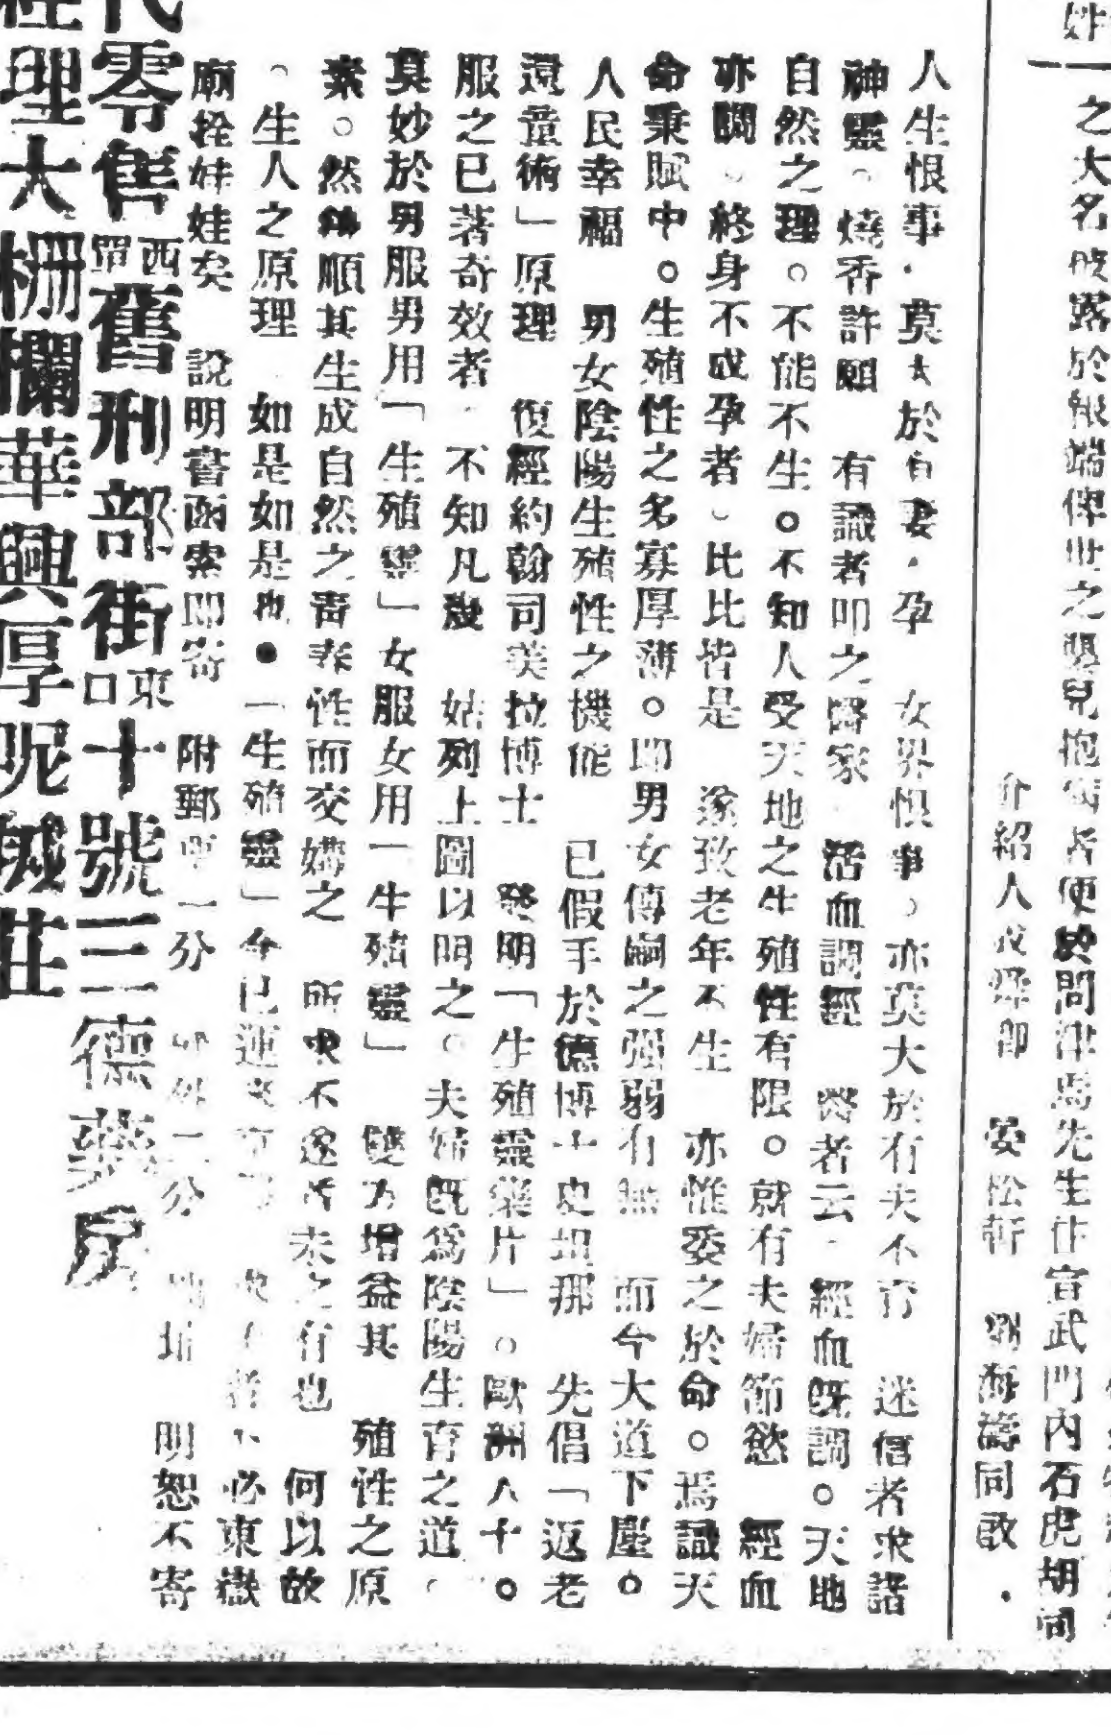 姓一之大名披露於報端俾世之嬰兒抱病者便於問津焉先生住宣武門內石虎胡同
介紹人 晏松軒 劉海濤同啟
人生恨事莫大於有妻不孕 女界恨事亦莫大於有夫不育 迷信者求諸
神靈 燒香許願 有識者叩之醫家 活血調經 醫者云 經血既調。天地
自然之理。不能不生。不知人受天地之生殖性有限。就有夫婦節慾 經血
亦調 終身不成孕者 比比皆是 遂致老年不生 亦惟委之於命。焉識天
命秉賦中。生殖性之多寡厚薄。即男女傳嗣之强弱有無 而今大道下塵。
人民幸福 男女陰陽生殖性之機能 已假手於德博士史坦那 先倡「返老
還童術」原理 復經約翰司美拉博士 發明「生殖靈藥片」。歐洲人士。
服之已著奇效者 不知凡幾 姑列上圖以明之。夫婦既爲陰陽生育之道。
莫妙於男服男用「生殖靈」女服女用「生殖靈」 雙方增益其 殖性之原
素。然後順其生成自然之靑春性而交媾之 所求不遂者未之有也 何以故
生人之原理 如是如是也●「生殖靈」今已運 者不必東嶽
廟拴娃娃矣 說明書函索即寄 附郵票一分 外二分 地址 明恕不寄
代零售西單舊刑部街東口十號三德藥房
經理大柵欄華興厚呢絨莊